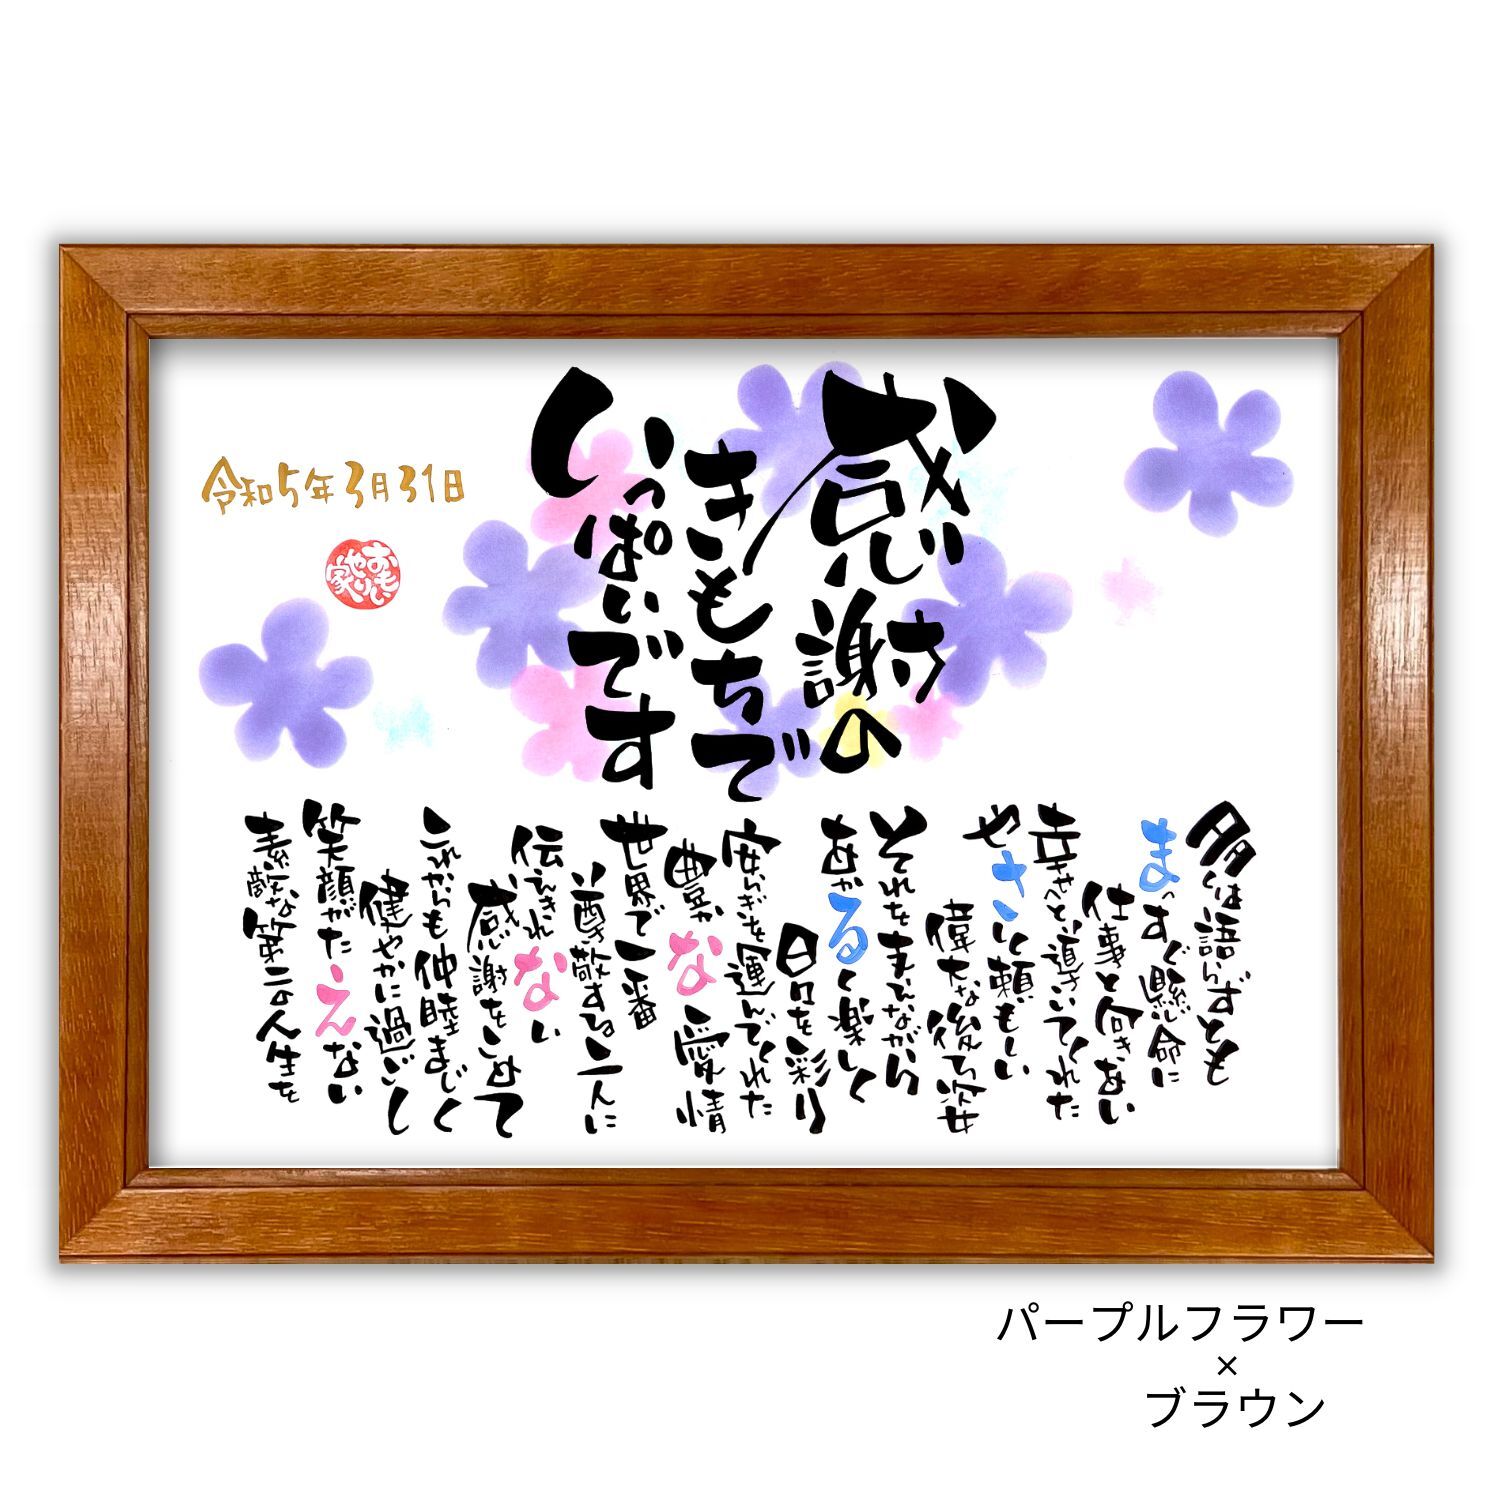 感謝の
きもちで
いっぱいです
令和5年3月31日
おもいやり家
多くは語らずとも
まっすぐ懸命に
仕事と向きあい
幸せへと導いてくれた
やさしく頼もしい
偉大な後ろ姿
それをまといながら
あかるく楽しく
日々を彩り
安らぎを運んでくれた
豊かな愛情
世界で一番
尊敬する二人に
伝えきれない
感謝をこめて
これからも仲睦まじく
健やかに過ごし
笑顔がたえない
素敵な第二の人生を
パープルフラワー
×
ブラウン